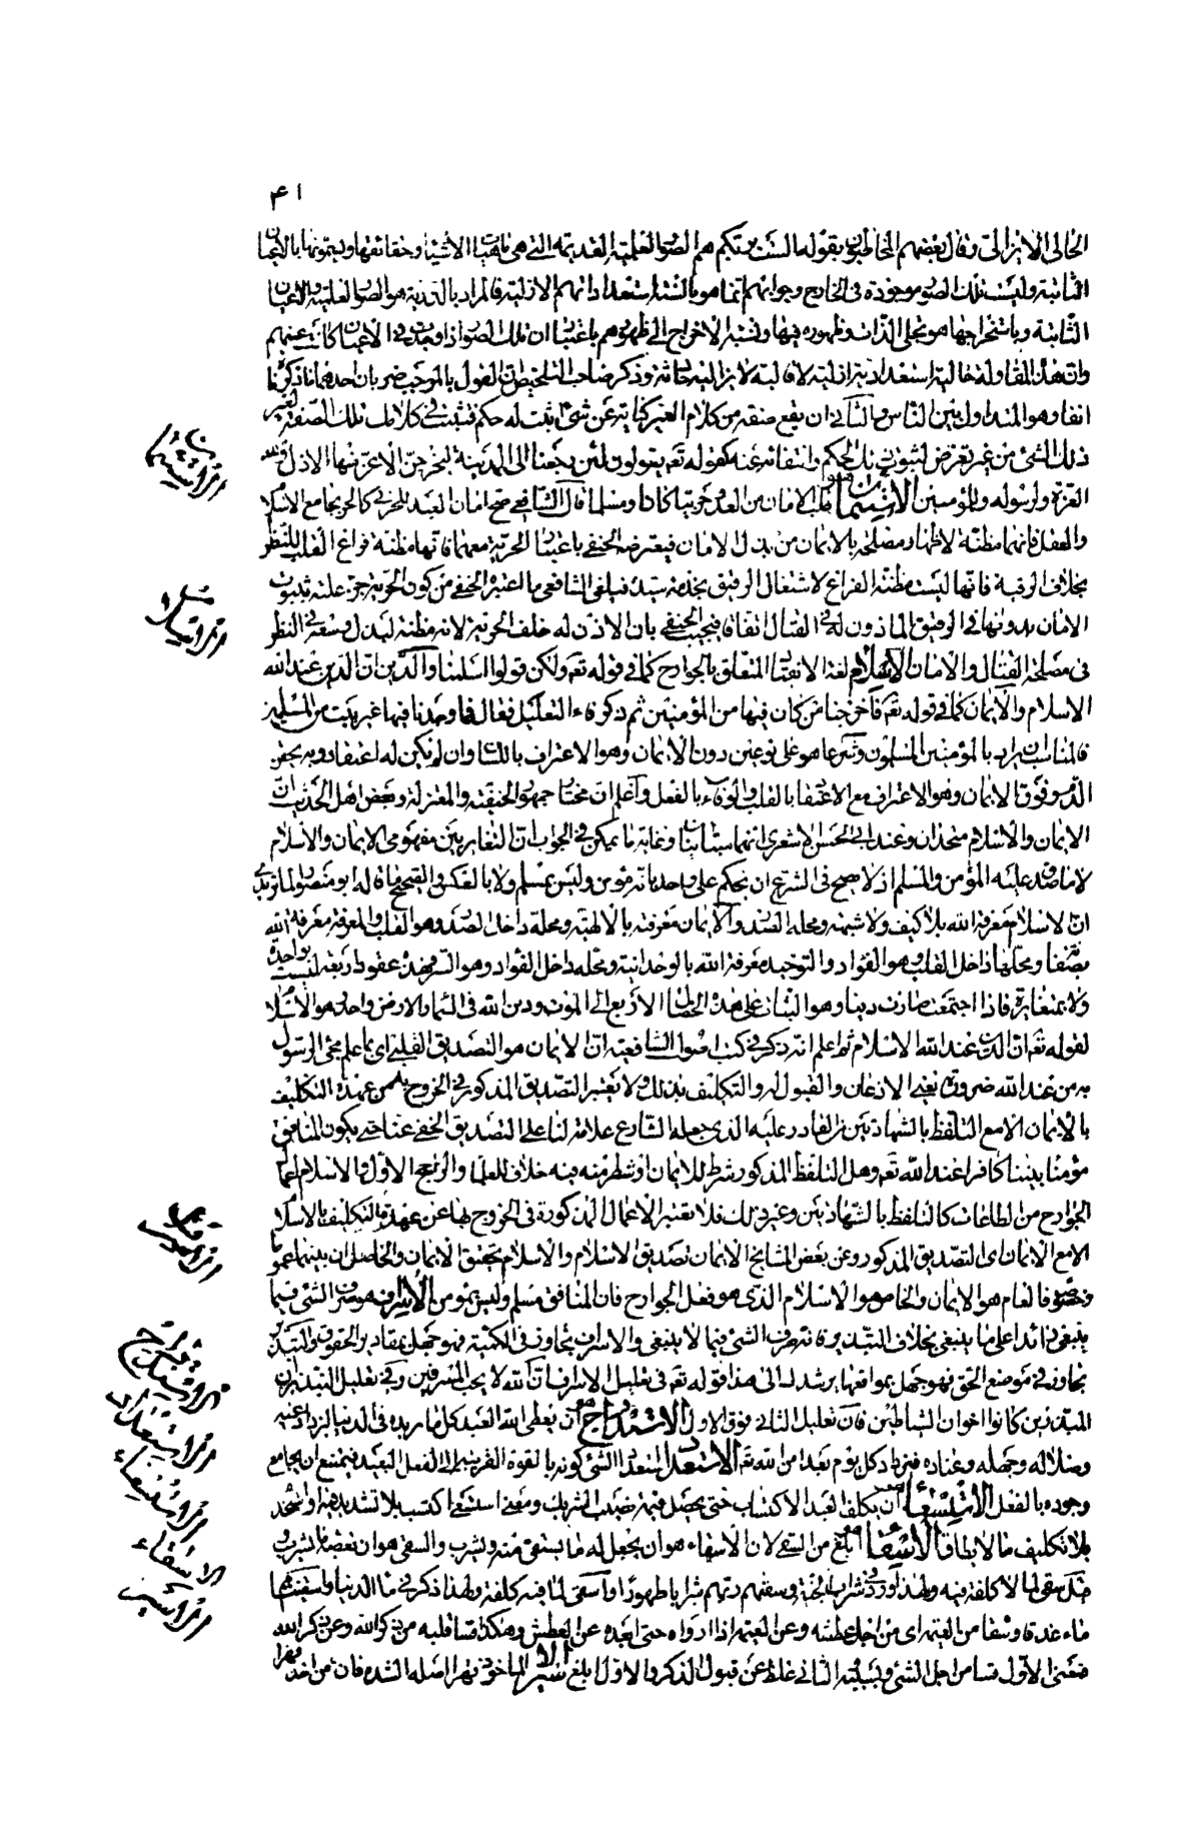 ٤١
الحالى الابزالى وقال بعضهم المخاطبون بقوله الست بربكم هم الصور العلمية القديمة التى هى ماهيات الاشياء وحقائقها ويسمونها بالاعيان
الثابتة وليست تلك الصور موجودة فى الخارج وجوابهم انما هو بالسنة استعداداتهم الازلية فالمراد بالذرية هو الصور العلمية والاعيان
الثابتة وباستخراجها هو تجلى الذات وظهوره فيها ونسبة الاخراج الى ظهورهم باعتبار ان تلك الصور اذا وجدت فى الاعيان كانت عينهم
وان هذه المقاولة حالية استعدادية ازلية لا قالية لا يزالية حادثة وذكر صاحب التلخيص ان القول بالموجب ضربان احدهما ما ذكرنا
انفا وهو المتداول بين الناس والثانى ان يقع صفة من كلام الغير كناية عن شئ اثبت له حكم فتثبت فى كلامك تلك الصفة لغير
ذلك الشئ من غير تعرض لثبوت ذلك الحكم وانتفائه عنه كقوله تعه يقولون لئن رجعنا الى المدينة ليخرجن الاعز منها الاذل ولله
العزة ولرسوله وللمؤمنين الاستيمان هو طلب الامان من العدو حربيا كان او مسلما قال الشافعى صح امان العبد للحربى كالحر بجامع الاسلام
والعقل فانهما مظنة لاظهار مصلحة بالايمان من بذل الامان فيعترض الحنفى باعتبار الحرية معهما فانها مظنة فراغ القلب للنظر
بخلاف الرقية فانها ليست مظنة الفراغ لاشتغال الرقيق بخدمة سيده فيلغى الشافعى ما اعتبره الحنفى من كون الحرية جزء علة بثبوت
الامان بدونها فى الرقيق الماذون له فى القتال اتفاقا فيجيب الحنفى بان الاذن له خلف الحرية لانه مظنة لبذل وسعه فى النظر
فى مصلحة القتال والامان الاسلام لغة الانقياد المتعلق بالجوارح كما فى قوله تعه ولكن قولوا اسلمنا والدين ان الدين عند الله
الاسلام والايمان كما فى قوله تعه فاخرجنا من كان فيها من المؤمنين ثم ذكر فاء التعليل فقال فما وجدنا فيها غير بيت من المسلمين
فالمناسب ان يراد بالمؤمنين المسلمون وشرعا هو على نوعين دون الايمان وهو الاعتراف باللسان وان لم يكن له اعتقاد وبه يحقن
الدم وفوق الايمان وهو الاعتراف مع الاعتقاد بالقلب والوفاء بالفعل واعلم ان مختار جمهور الحنفية والمعتزلة وبعض اهل الحديث ان
الايمان والاسلام متحدان وعند ابى الحسن الاشعرى انهما متباينان وغاية ما يمكن فى الجواب ان التغاير بين مفهومى الايمان والاسلام
لا ما صدق عليه المؤمن والمسلم اذ لا يصح فى الشرع ان يحكم على واحد بانه مؤمن وليس بمسلم ولا بالعكس والصحيح ما قاله ابو منصور الماتريدى
ان الاسلام معرفة الله بلا كيف ولا شبه ومحله الصدر والايمان معرفته بالالهية ومحله داخل الصدر وهو القلب والمعرفة معرفة الله
بصفاته ومحلها داخل القلب وهو الفؤاد والتوحيد معرفة الله بالوحدانية ومحله داخل الفؤاد وهو السر فهذه عقود اربعة ليست بواحدة
ولا بمتغايرة فاذا اجتمعت صارت دينا وهو الثبات على هذه الخصال الاربع الى الموت ودين الله فى السماء والارض واحد وهو الاسلام
لقوله تعه ان الدين عند الله الاسلام ثم اعلم انه ذكر فى كتب اصول الشافعية ان الايمان هو التصديق القلبى اى بما علم مجئ الرسول
به من عند الله ضرورة يعنى الاذعان والقبول له والتكليف بذلك ولا يعتبر التصديق المذكور فى الخروج به من عهدة التكليف
بالايمان الا مع التلفظ بالشهادتين من القادر عليه الذى جعله الشارع علامة لنا على التصديق الخفى عنا حتى يكون المنافق
مؤمنا بيننا كافرا عند الله تعه وهل التلفظ المذكور شرط للايمان او شطر منه فيه خلاف للعلماء والراجح الاول والاسلام اعمال
الجوارح من الطاعات كالتلفظ بالشهادتين وغير ذلك فلا يعتبر الاعمال المذكورة فى الخروج بها عن عهدة التكليف بالاسلام
الا مع الايمان اى التصديق المذكور وعن بعض المشايخ الايمان تصديق الاسلام والاسلام تحقيق الايمان والحاصل ان بينهما عموما
وخصوصا فالعام هو الايمان والخاص هو الاسلام الذى هو فعل الجوارح فان المنافق مسلم وليس بمؤمن الاسراف هو صرف الشئ فيما
ينبغى زائدا على ما ينبغى بخلاف التبذير فانه صرف الشئ فيما لا ينبغى والاسراف تجاوز فى الكمية فهو جهل بمقادير الحقوق والتبذير
تجاوز فى موضع الحق فهو جهل بمواقعها يرشدك الى هذا قوله تعه فى تعليل الاسراف ان الله لا يحب المسرفين وفى تعليل التبذير ان
المبذرين كانوا اخوان الشياطين فان تعليل الثانى فوق الاول الاستدراج هو ان يعطى الله العبد كل ما يريده فى الدنيا ليزداد غيه
وضلاله وجهله وعناده فيزداد كل يوم بعدا من الله تعه الاستعداد استعداد الشئ كونه بالقوة القريبة الى الفعل البعيد فيمتنع ان يجامع
وجوده بالفعل الاستسعاء هو ان يكلف العبد الاكتساب حتى يحصل قيمة نصيب الشريك ومعنى استسعى اكتسب بلا تشديد فيه او استخدم
بلا تكليف ما لا يطاق الاسقاء هو ابلغ من السقى لان الاسقاء هو ان يجعل له ما يستقى منه ويشرب والسقى هو ان يعطيه ما يشرب
سقى لما لا كلفة فيه ولهذا ورد فى شراب الجنة وسقيهم ربهم شرابا طهورا واسقى لما فيه كلفة ولهذا ذكر فى ماء الدنيا لاسقيناهم
ماء غدقا وسقاه من العيمة اى من اجل عطشه وعن العيمة اذا ارواه حتى ابعده عن العطش وهكذا قسا قلبه من ذكر الله وعن ذكر الله
فمعنى الاول قسا من اجل الشئ وبسببه والثانى غلظ عن قبول الذكر والاول ابلغ الاسير الماخوذ قهرا اصله الشد فان من اخذ قهرا
الاستيمان
الاسلام
الاسراف
الاستدراج
الاستعداد
الاستسعاء
الاسقاء
الاسير